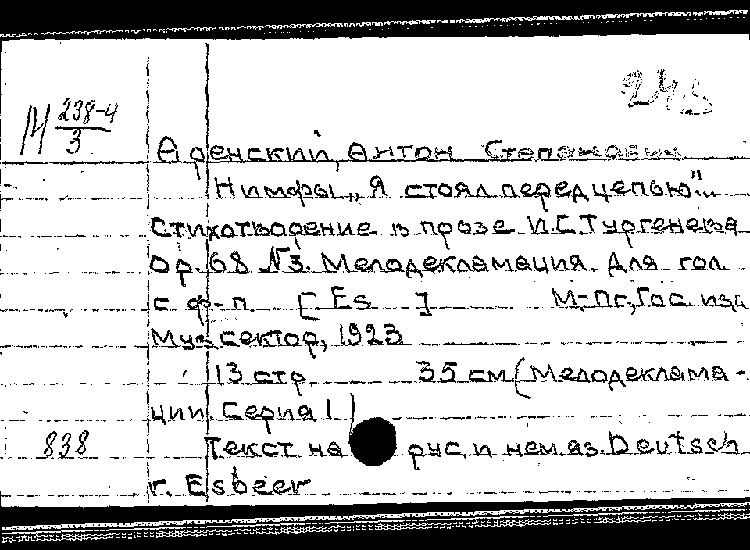 243
М 238-4
3
Аренский, Антон Степанович
Нимфы „Я стоял перед цепью"...
Стихотворение в прозе И.С. Тургенева
op. 68 №3. Мелодекламация. Для гол.
с ф-п. [Es ] М.-Пг., Гос. изд.
Муз. сектор, 1923
13 стр. 35 см (Мелодеклама-
ции. Серия I)
838 Текст на рус. и нем. яз. Deutsch
v. Esbeer